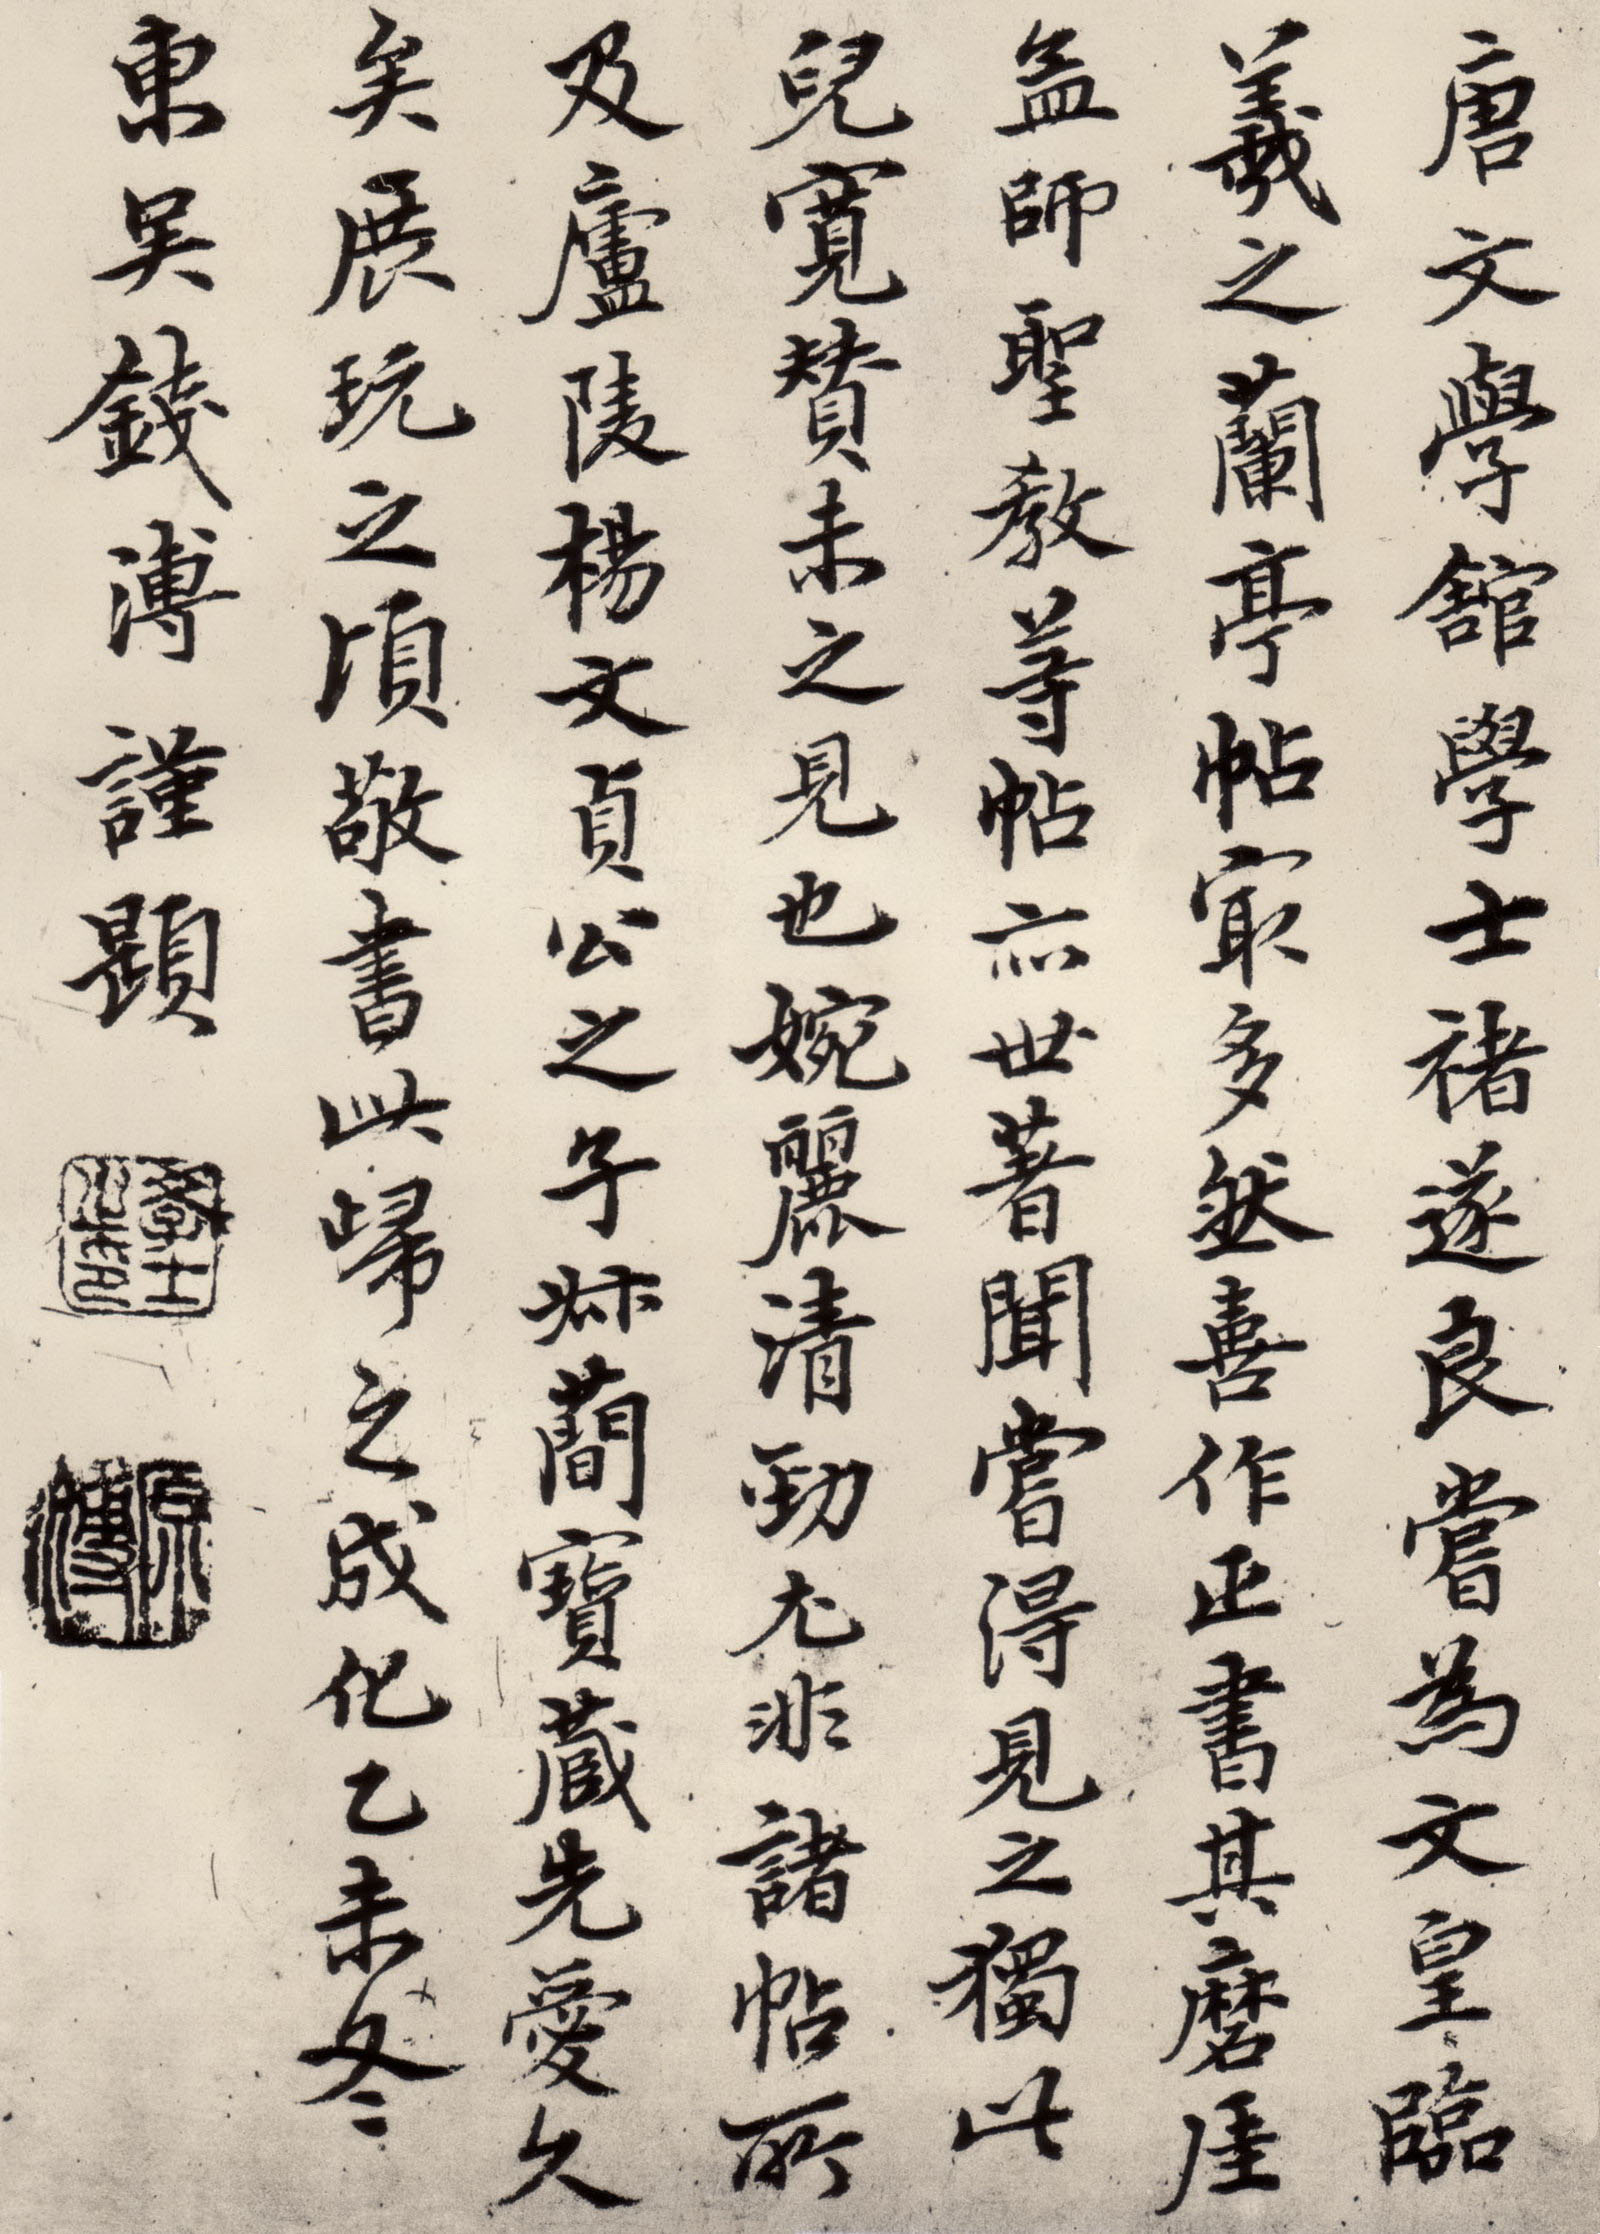 唐文學館學士褚遂良嘗為文皇臨
羲之蘭亭帖㝡多然喜作正書其磨厓
孟師聖教等帖亦世著聞嘗得見之獨此
兒寬贊未之見也婉麗清勁尤非諸帖所
及廬陵楊文貞公之子叔蕳寶藏先愛久
矣展玩之頃敬書此歸之成化乙未冬
東吳錢溥謹題
學士
原溥